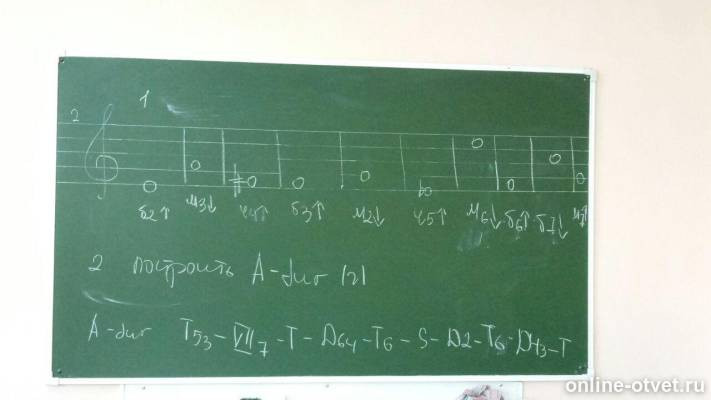 1
2
б2↑ м3↓ ч4↑ б3↑ м2↓ ч5↑ м6↓ б6↑ б7↓ м7↑
2 построить A-dur (г)
A-dur T53 - VII7 - T - D64 - T6 - S - D2 - T6 - D43 - T
online-otvet.ru